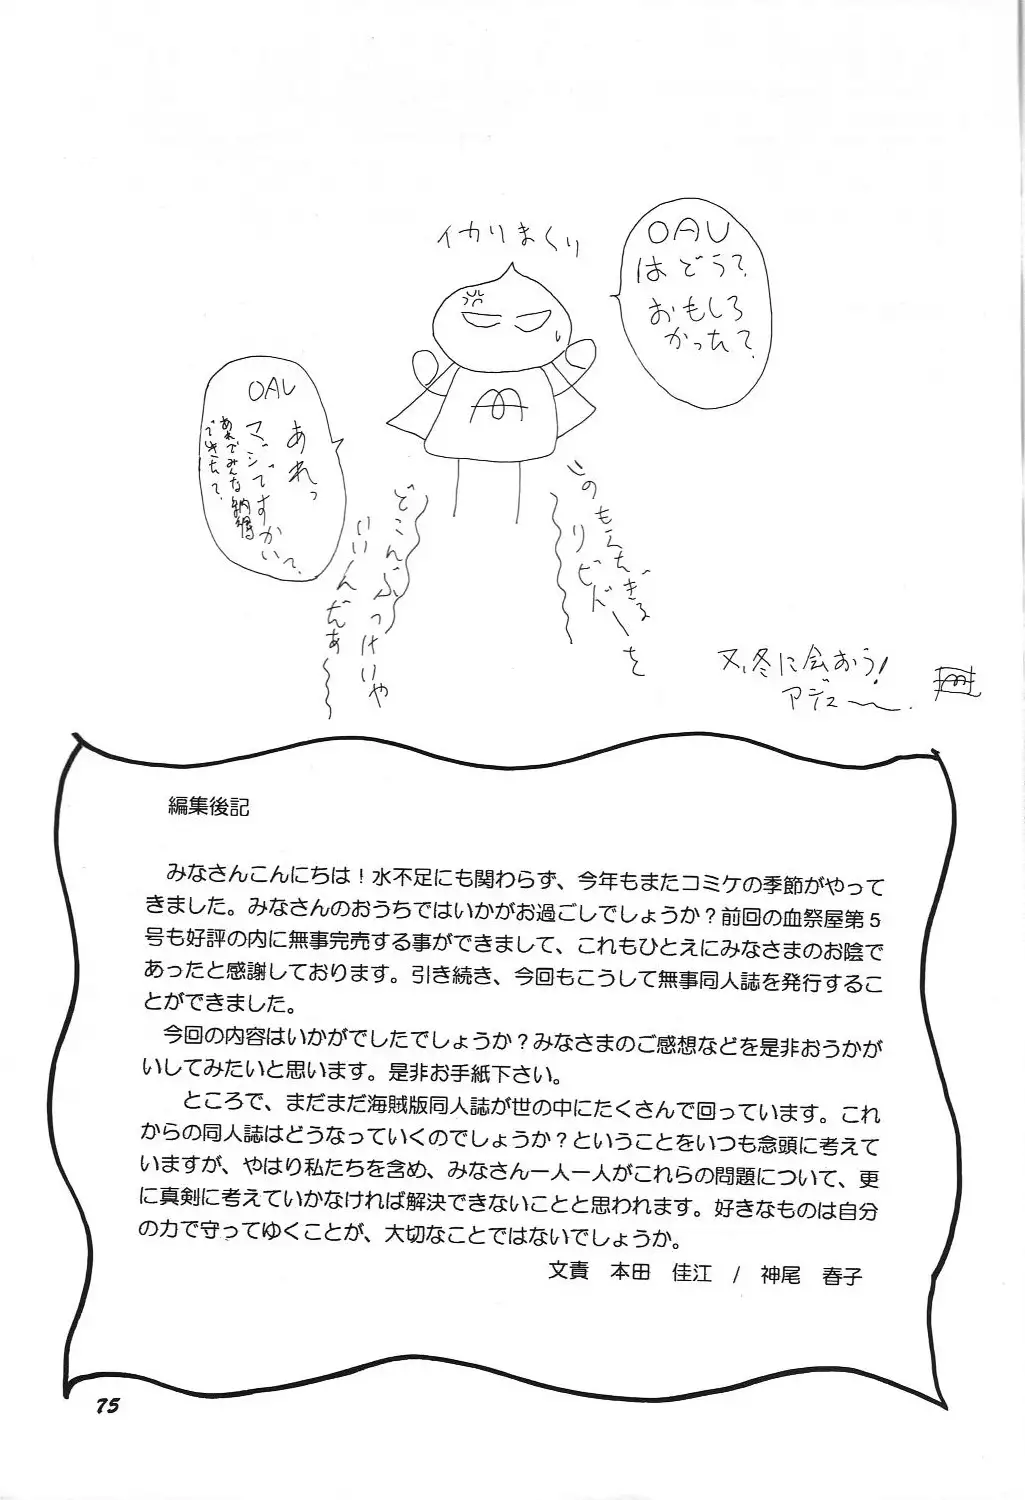 イカりまくり
OAU
はどう？
おもしろ
かった？
OAU
あれっ
マジですかい？
あれでみんな納得
できたって？
このもえたぎる
リビドーを
どこんぶつけいや
いいんだぁ〜〜
又、冬に会おう！
アデュー〜.
編集後記
みなさんこんにちは！水不足にも関わらず、今年もまたコミケの季節がやって
きました。みなさんのおうちではいかがお過ごしでしょうか？前回の血祭屋第５
号も好評の内に無事完売する事ができまして、これもひとえにみなさまのお陰で
あったと感謝しております。引き続き、今回もこうして無事同人誌を発行するこ
とができました。
今回の内容はいかがでしたでしょうか？みなさまのご感想などを是非おうかが
いしてみたいと思います。是非お手紙下さい。
ところで、まだまだ海賊版同人誌が世の中にたくさんで回っています。これ
からの同人誌はどうなっていくのでしょうか？ということをいつも念頭に考えて
いますが、やはり私たちを含め、みなさん一人一人がこれらの問題について、更
に真剣に考えていかなければ解決できないことと思われます。好きなものは自分
の力で守ってゆくことが、大切なことではないでしょうか。
文責　本田　佳江　/　神尾　春子
75